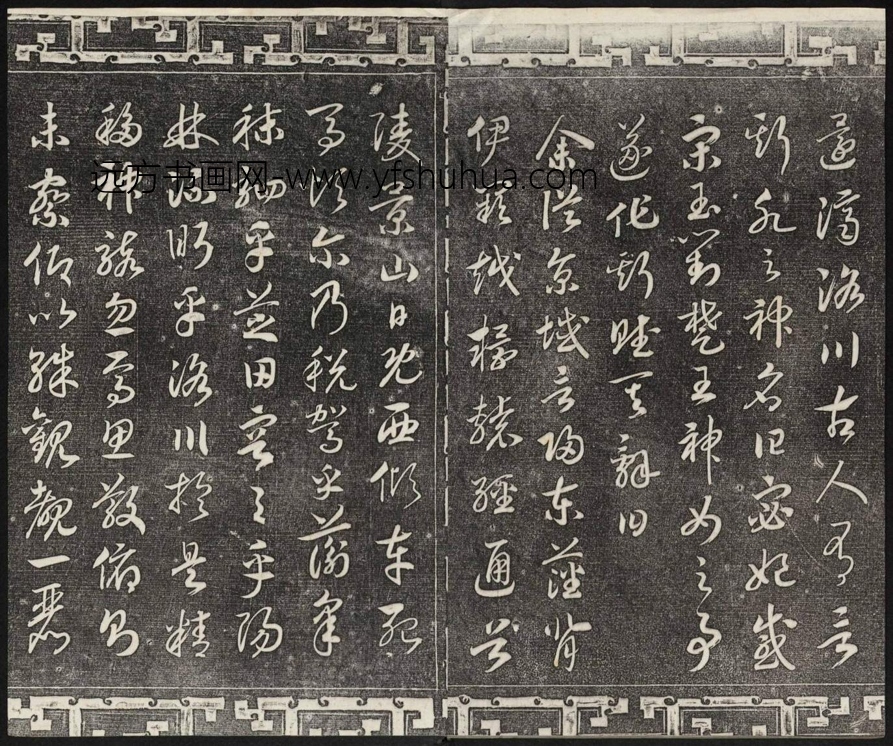 還濟洛川古人有言
斯水之神名曰宓妃感
宋玉對楚王神女之事
遂作斯賦其辭曰
余從京域言歸東藩背
伊闕越轘轅經通谷
陵景山日既西傾車殆
馬煩尔乃税駕乎蘅皋
秣駟乎芝田容與乎陽
林流眄乎洛川於是精
移神駭忽焉思散俯則
未察仰以殊觀覩一麗
远方书画网-www.yfshuhua.com